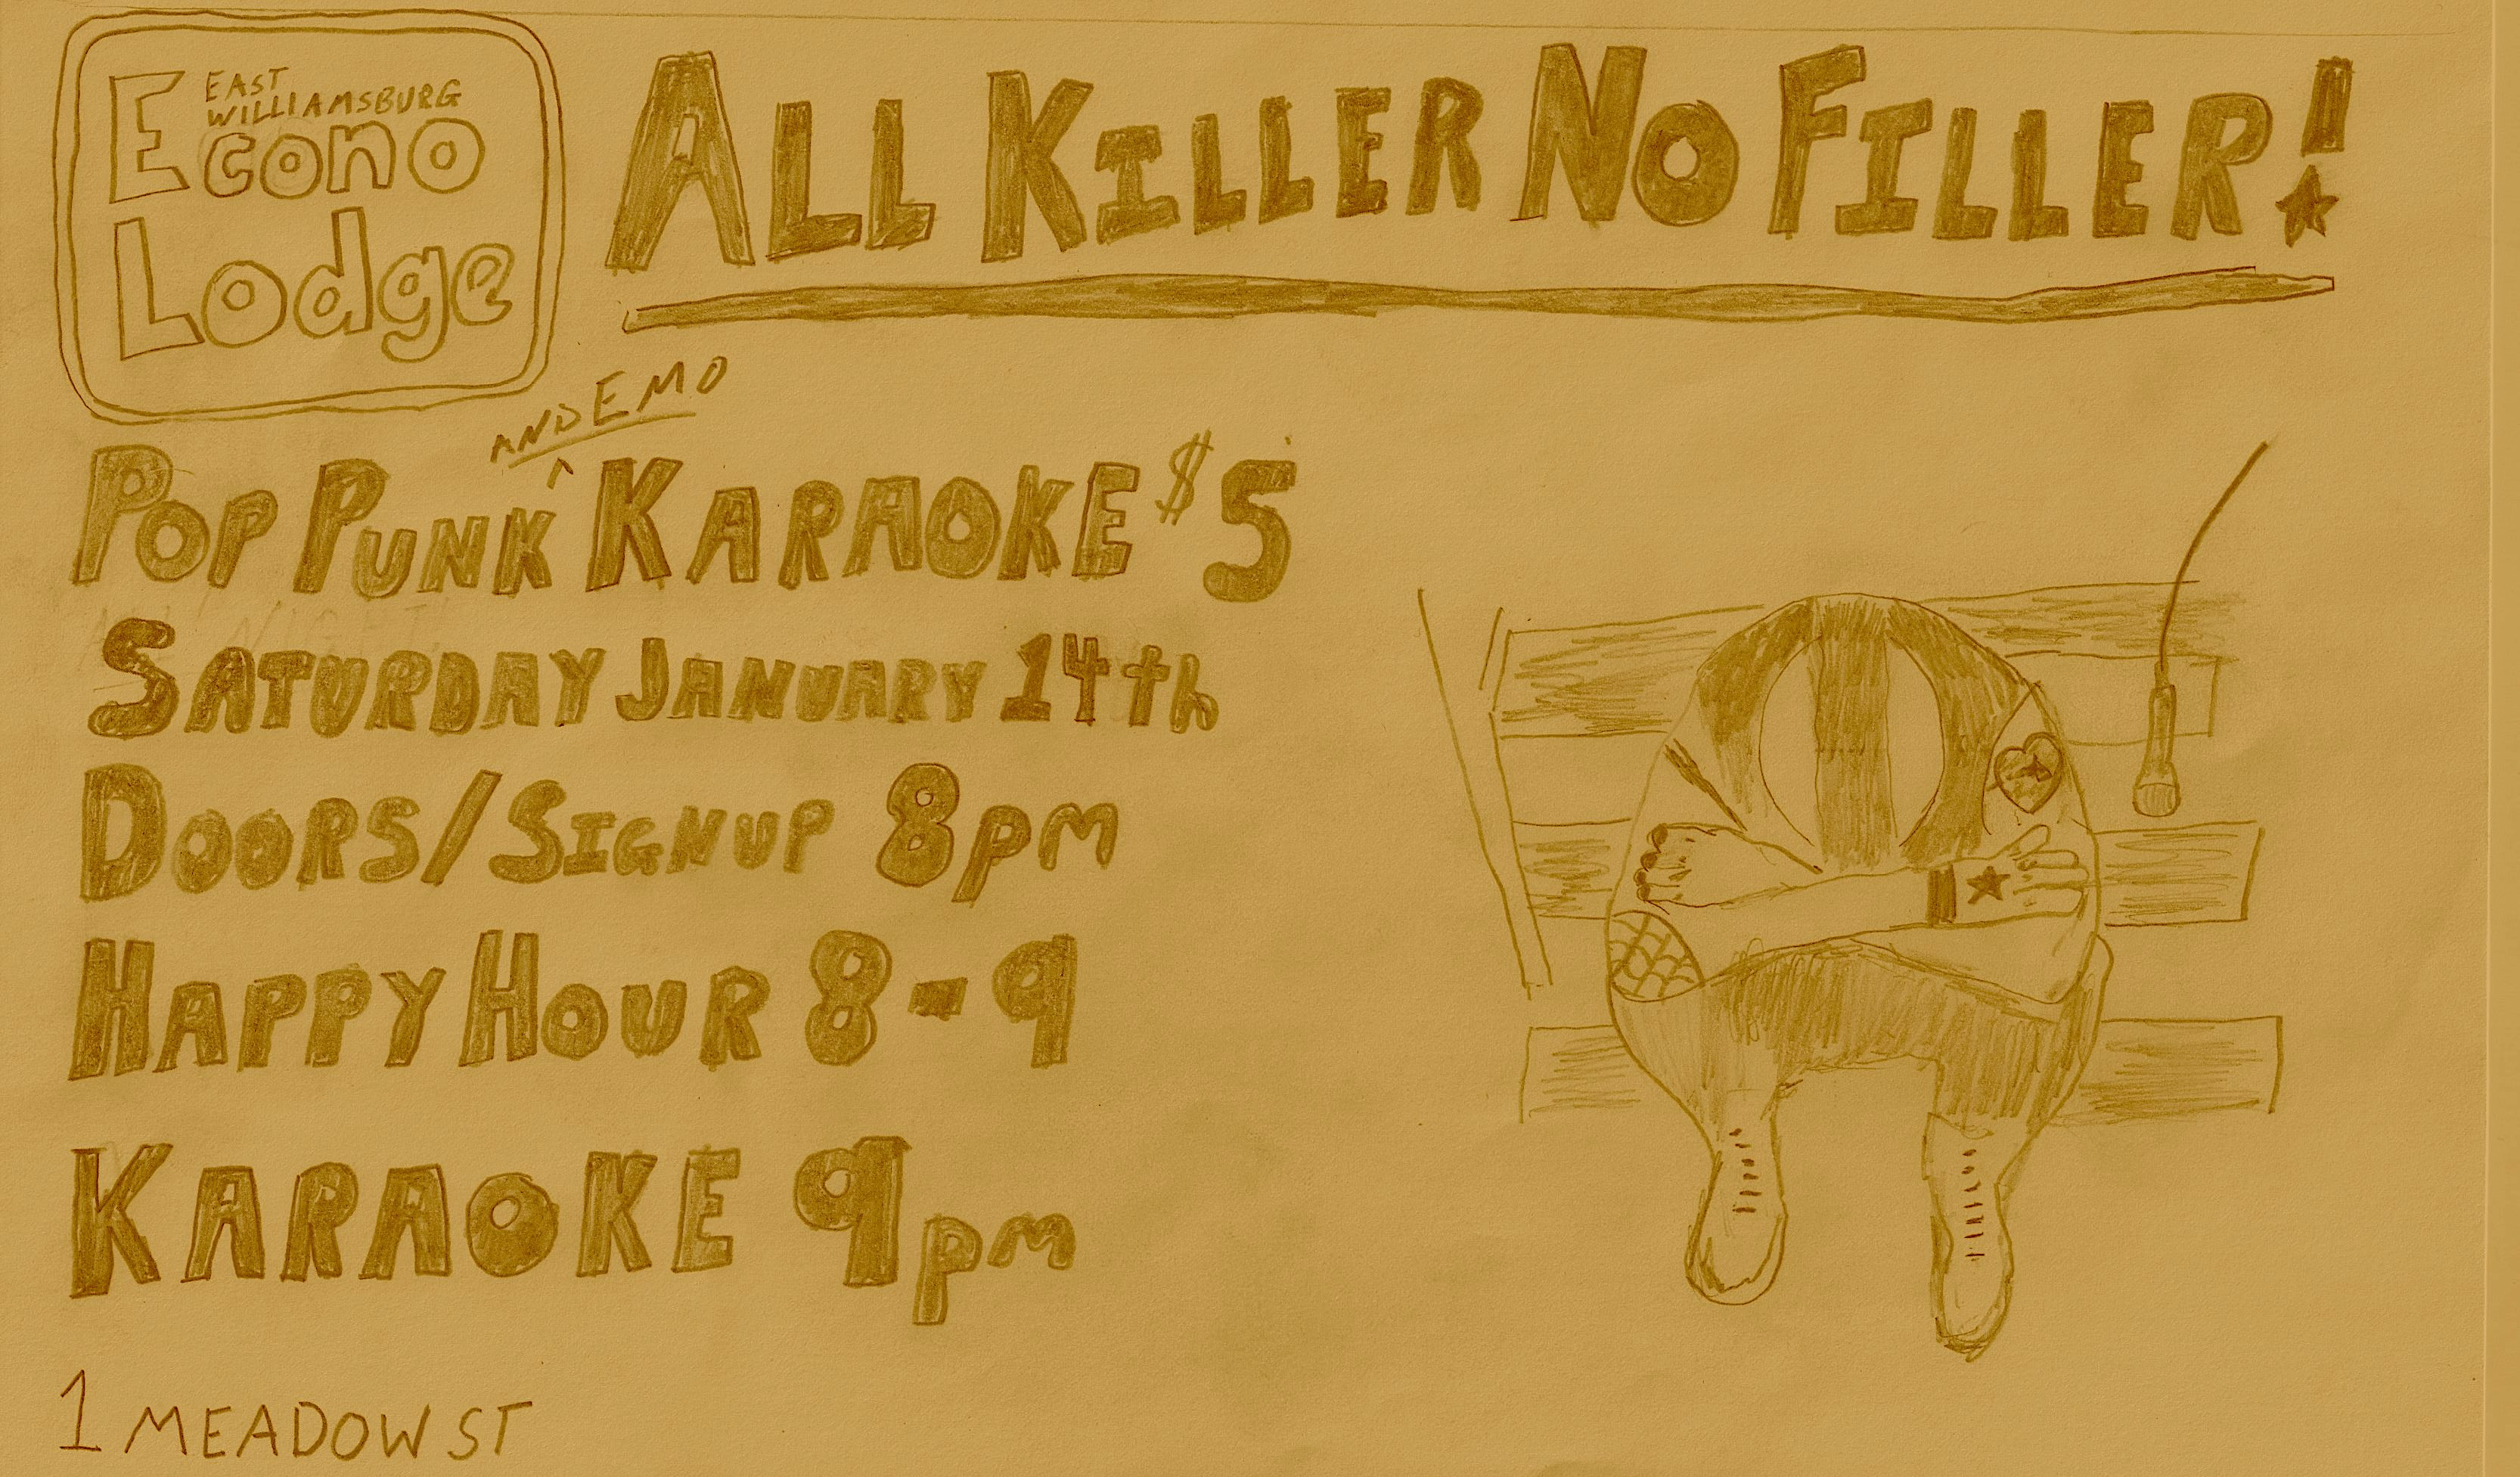 EAST
WILLIAMSBURG
Econo
Lodge
ALL KILLER NO FILLER!
AND EMO
POP PUNK ^ KARAOKE $5
SATURDAY JANUARY 14th
DOORS/SIGNUP 8pm
HAPPY HOUR 8-9
KARAOKE 9pm
1 MEADOW ST